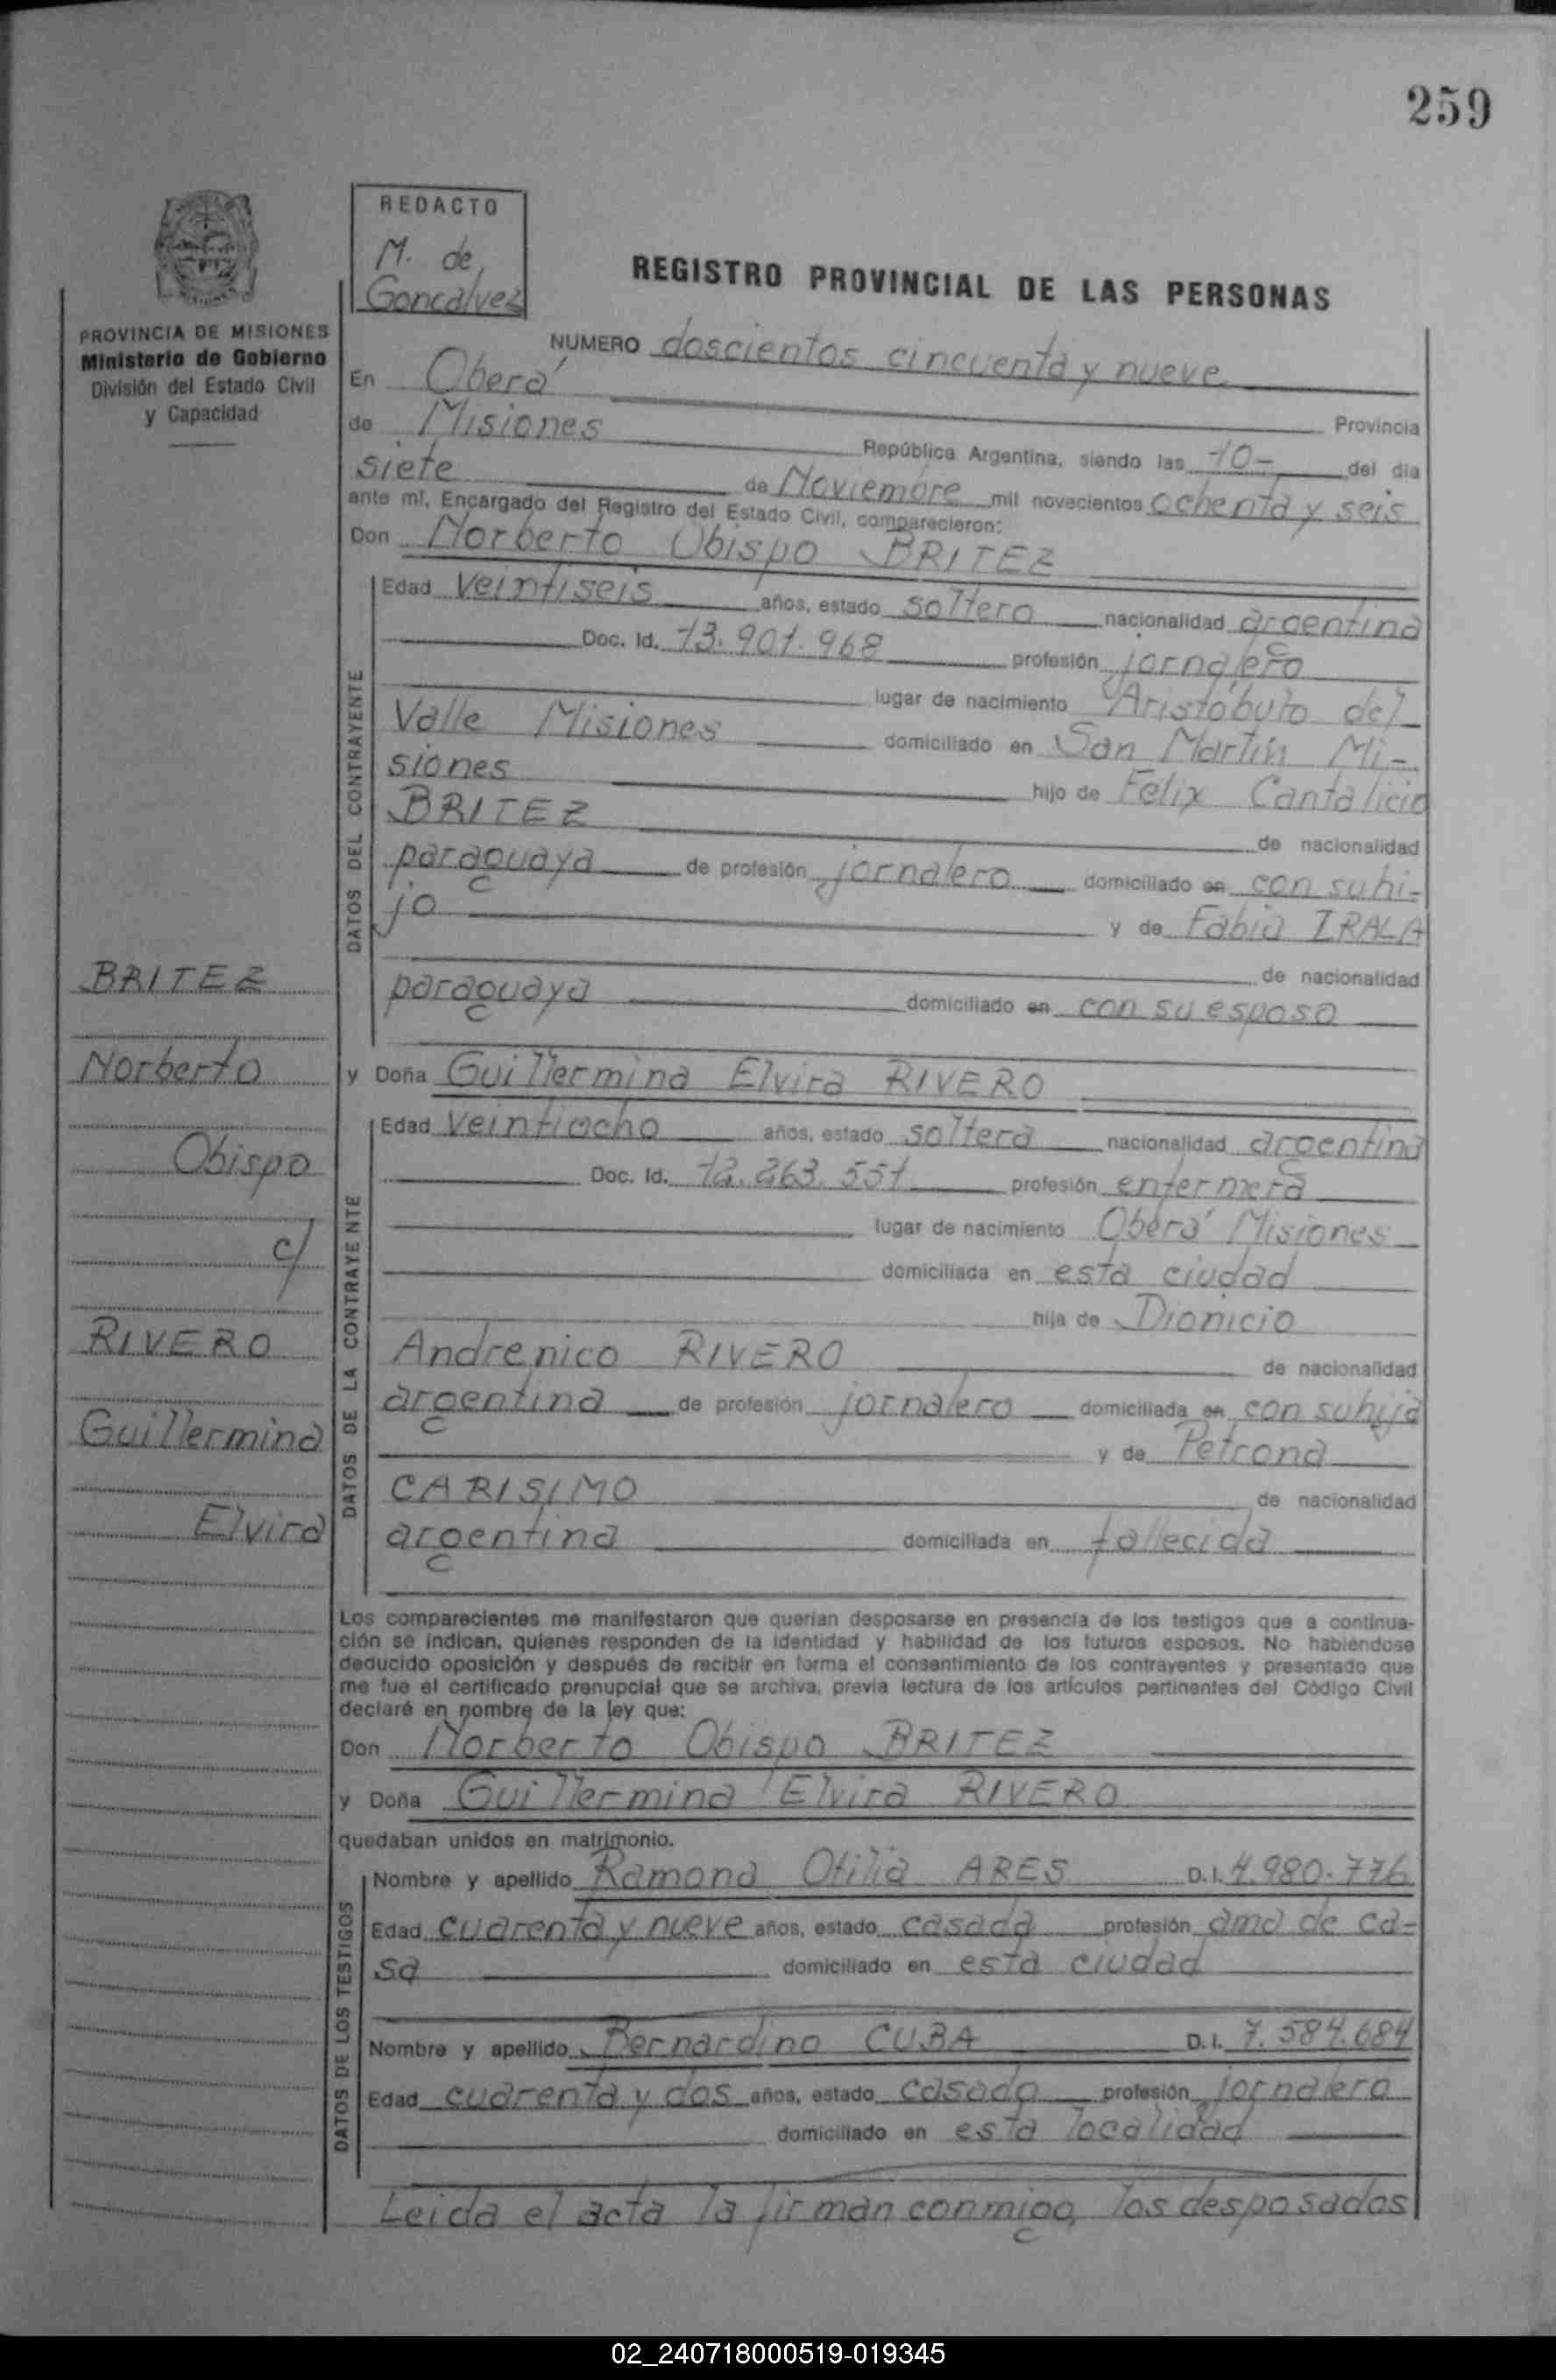 259
REDACTO
M. de
Goncalvez
PROVINCIA DE MISIONES
Ministerio de Gobierno
División del Estado Civil
y Capacidad
REGISTRO PROVINCIAL DE LAS PERSONAS
NUMERO doscientos cincuenta y nueve
En Oberá Provincia
de Misiones República Argentina, siendo las 10- del día
siete de Noviembre mil novecientos ochenta y seis
ante mí, Encargado del Registro del Estado Civil, comparecieron:
Don Norberto Obispo BRITEZ
DATOS DEL CONTRAYENTE
Edad veintiseis años, estado soltero nacionalidad argentina
Doc. Id. 13.901.968 profesión jornalero
lugar de nacimiento Aristóbulo del
Valle Misiones domiciliado en San Martín Mi-
siones hijo de Felix Cantalicio
BRITEZ de nacionalidad
paraguaya de profesión jornalero domiciliado en con su hi-
jo y de Fabia IRALA
de nacionalidad
paraguaya domiciliado en con su esposo
y Doña Guillermina Elvira RIVERO
DATOS DE LA CONTRAYENTE
Edad veintiocho años, estado soltera nacionalidad argentina
Doc. Id. 12.263.551 profesión enfermera
lugar de nacimiento Oberá Misiones
domiciliada en esta ciudad
hija de Dionicio
Andrenico RIVERO de nacionalidad
argentina de profesión jornalero domiciliada en con su hija
y de Petrona
CARISIMO de nacionalidad
argentina domiciliada en fallecida
BRITEZ
Norberto
Obispo
c/
RIVERO
Guillermina
Elvira
Los comparecientes me manifestaron que querían desposarse en presencia de los testigos que a continua-
ción se indican, quienes responden de la identidad y habilidad de los futuros esposos. No habiéndose
deducido oposición y después de recibir en forma el consentimiento de los contrayentes y presentado que
me fue el certificado prenupcial que se archiva, previa lectura de los artículos pertinentes del Código Civil
declaré en nombre de la ley que:
Don Norberto Obispo BRITEZ
y Doña Guillermina Elvira RIVERO
quedaban unidos en matrimonio.
DATOS DE LOS TESTIGOS
Nombre y apellido Ramona Otilia ARES D.I. 4.980.776
Edad cuarenta y nueve años, estado casada profesión ama de ca-
sa domiciliado en esta ciudad
Nombre y apellido Bernardino CUBA D.I. 7.584.684
Edad cuarenta y dos años, estado casado profesión jornalero
domiciliado en esta localidad
Leida el acta la firman conmigo, los desposados
02_240718000519-019345